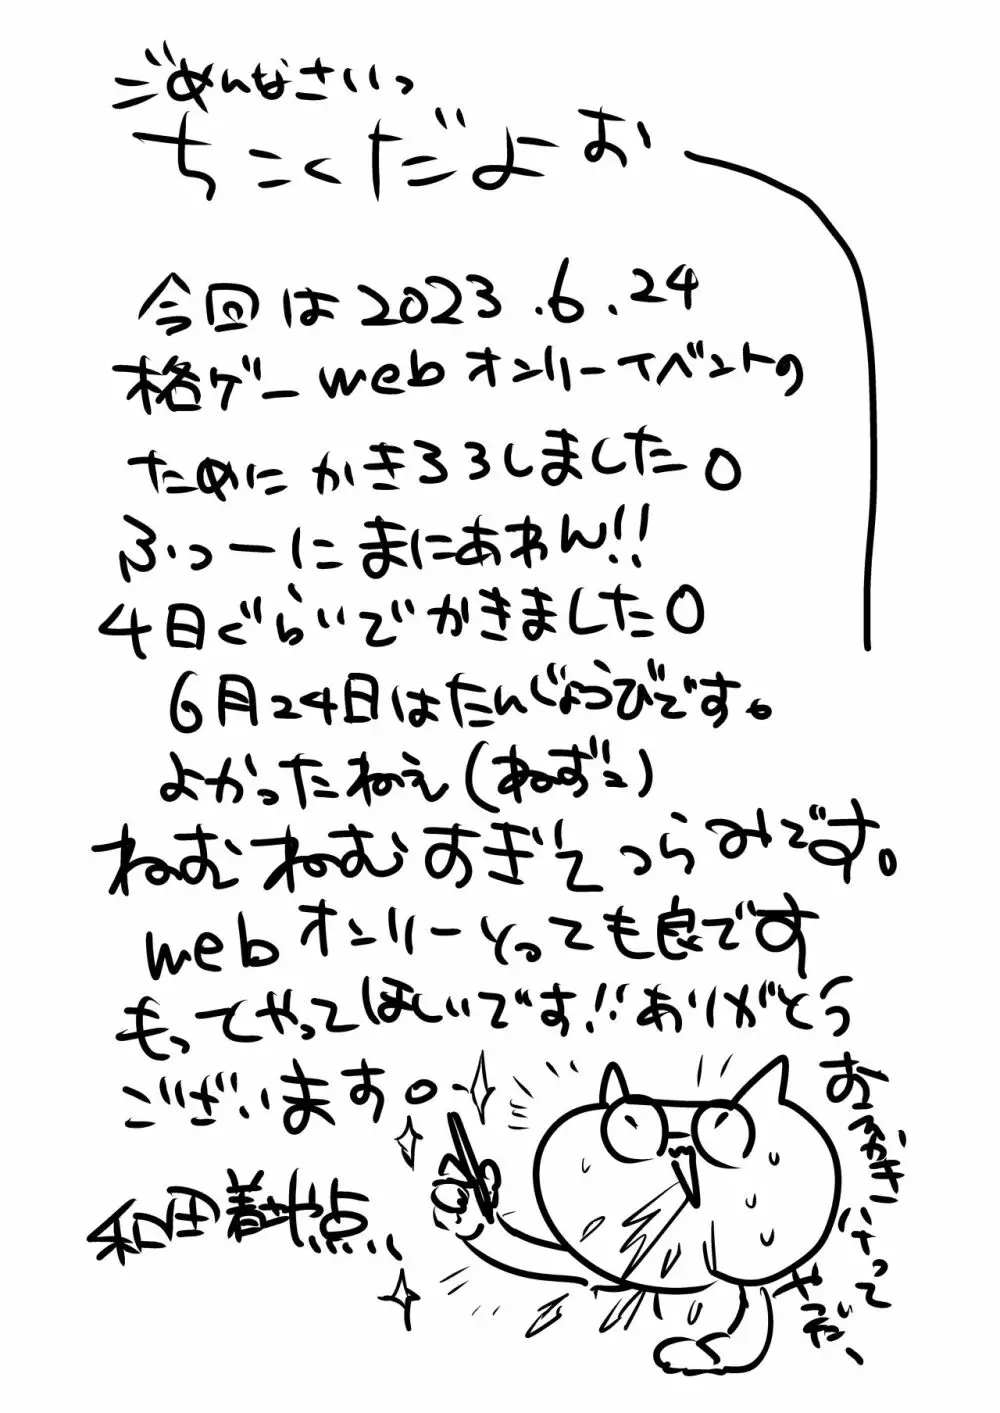 ごめんなさいっ
ちこくだよお
今回は2023.6.24
格ゲーwebオンリーイベントの
ためにかきろろしました。
ふっーにまにあわん!!
4日ぐらいでかきました。
6月24日はたんじょうびです。
よかったねえ(ねずこ)
ねむねむすぎてつらみです。
webオンリーとっても良です
もってやってほしいです!!ありがとう
ございます。
おえかき
って
やだ、
和田